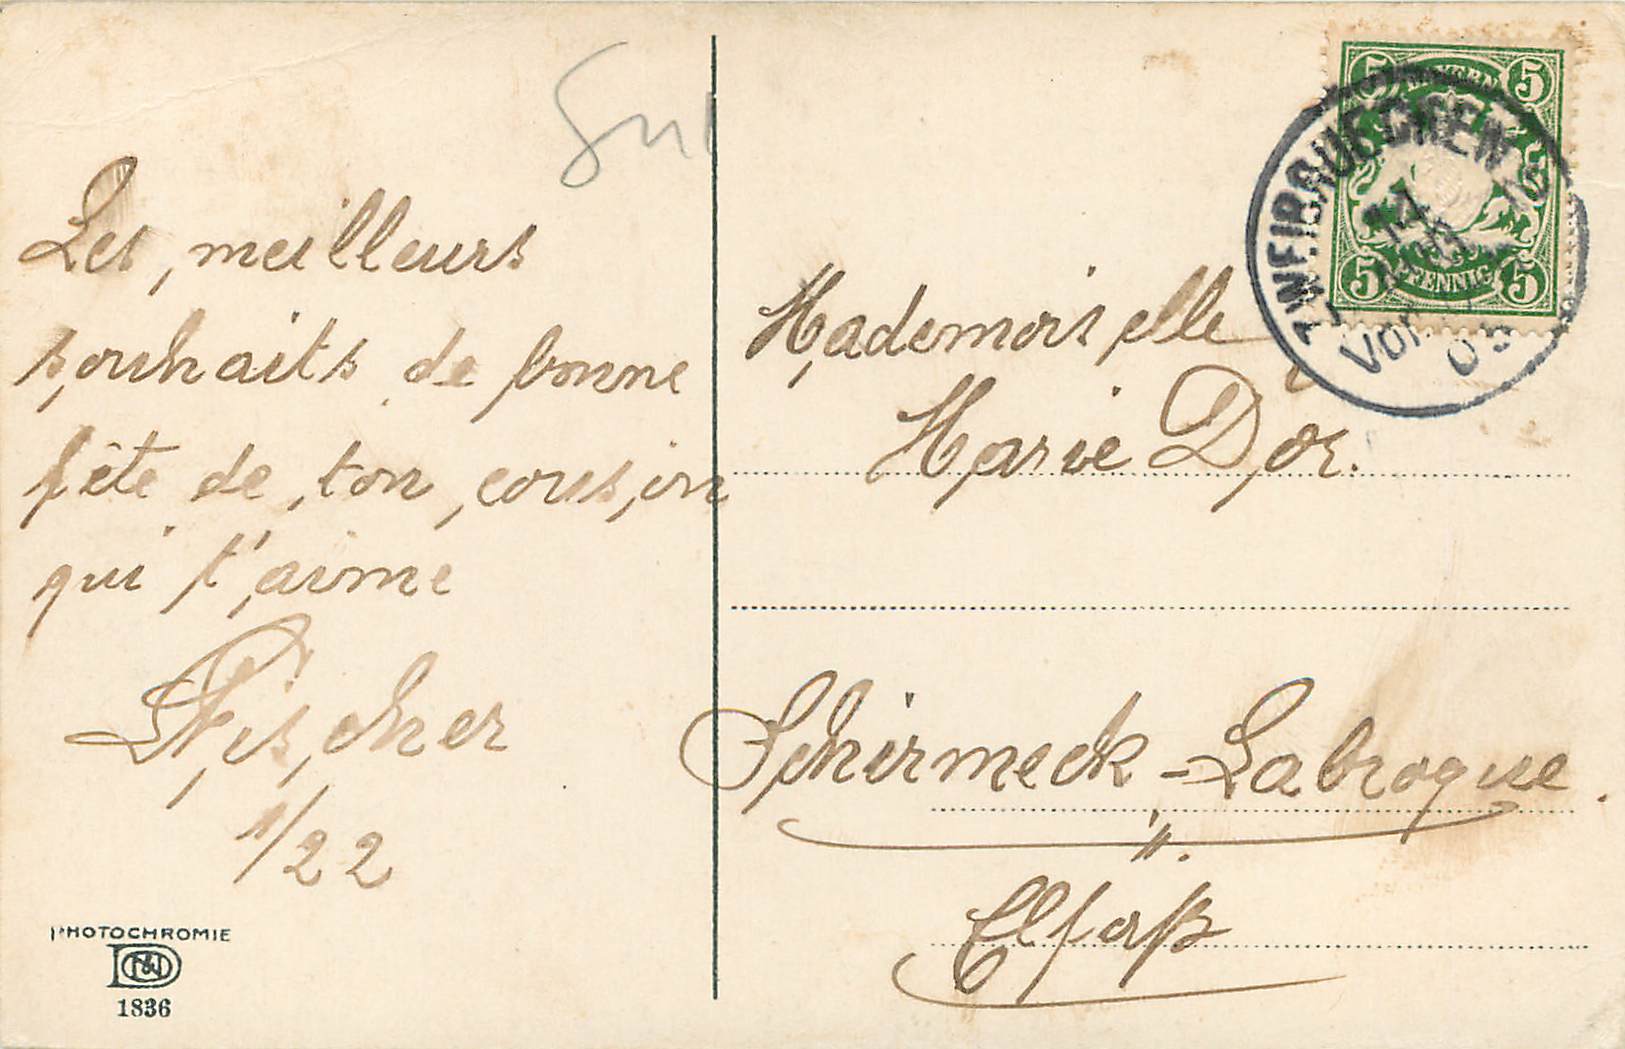 Les meilleurs
souhaits de bonne
fête de ton cousin
qui t'aime
Fischer
1/22
PHOTOCHROMIE
1836
BAYERN
5 5
5 5
PFENNIG
ZWEIBRUECKEN
Vor
Mademoiselle
Marie Dor.
Schirmeck-Labroque.
Elſaß